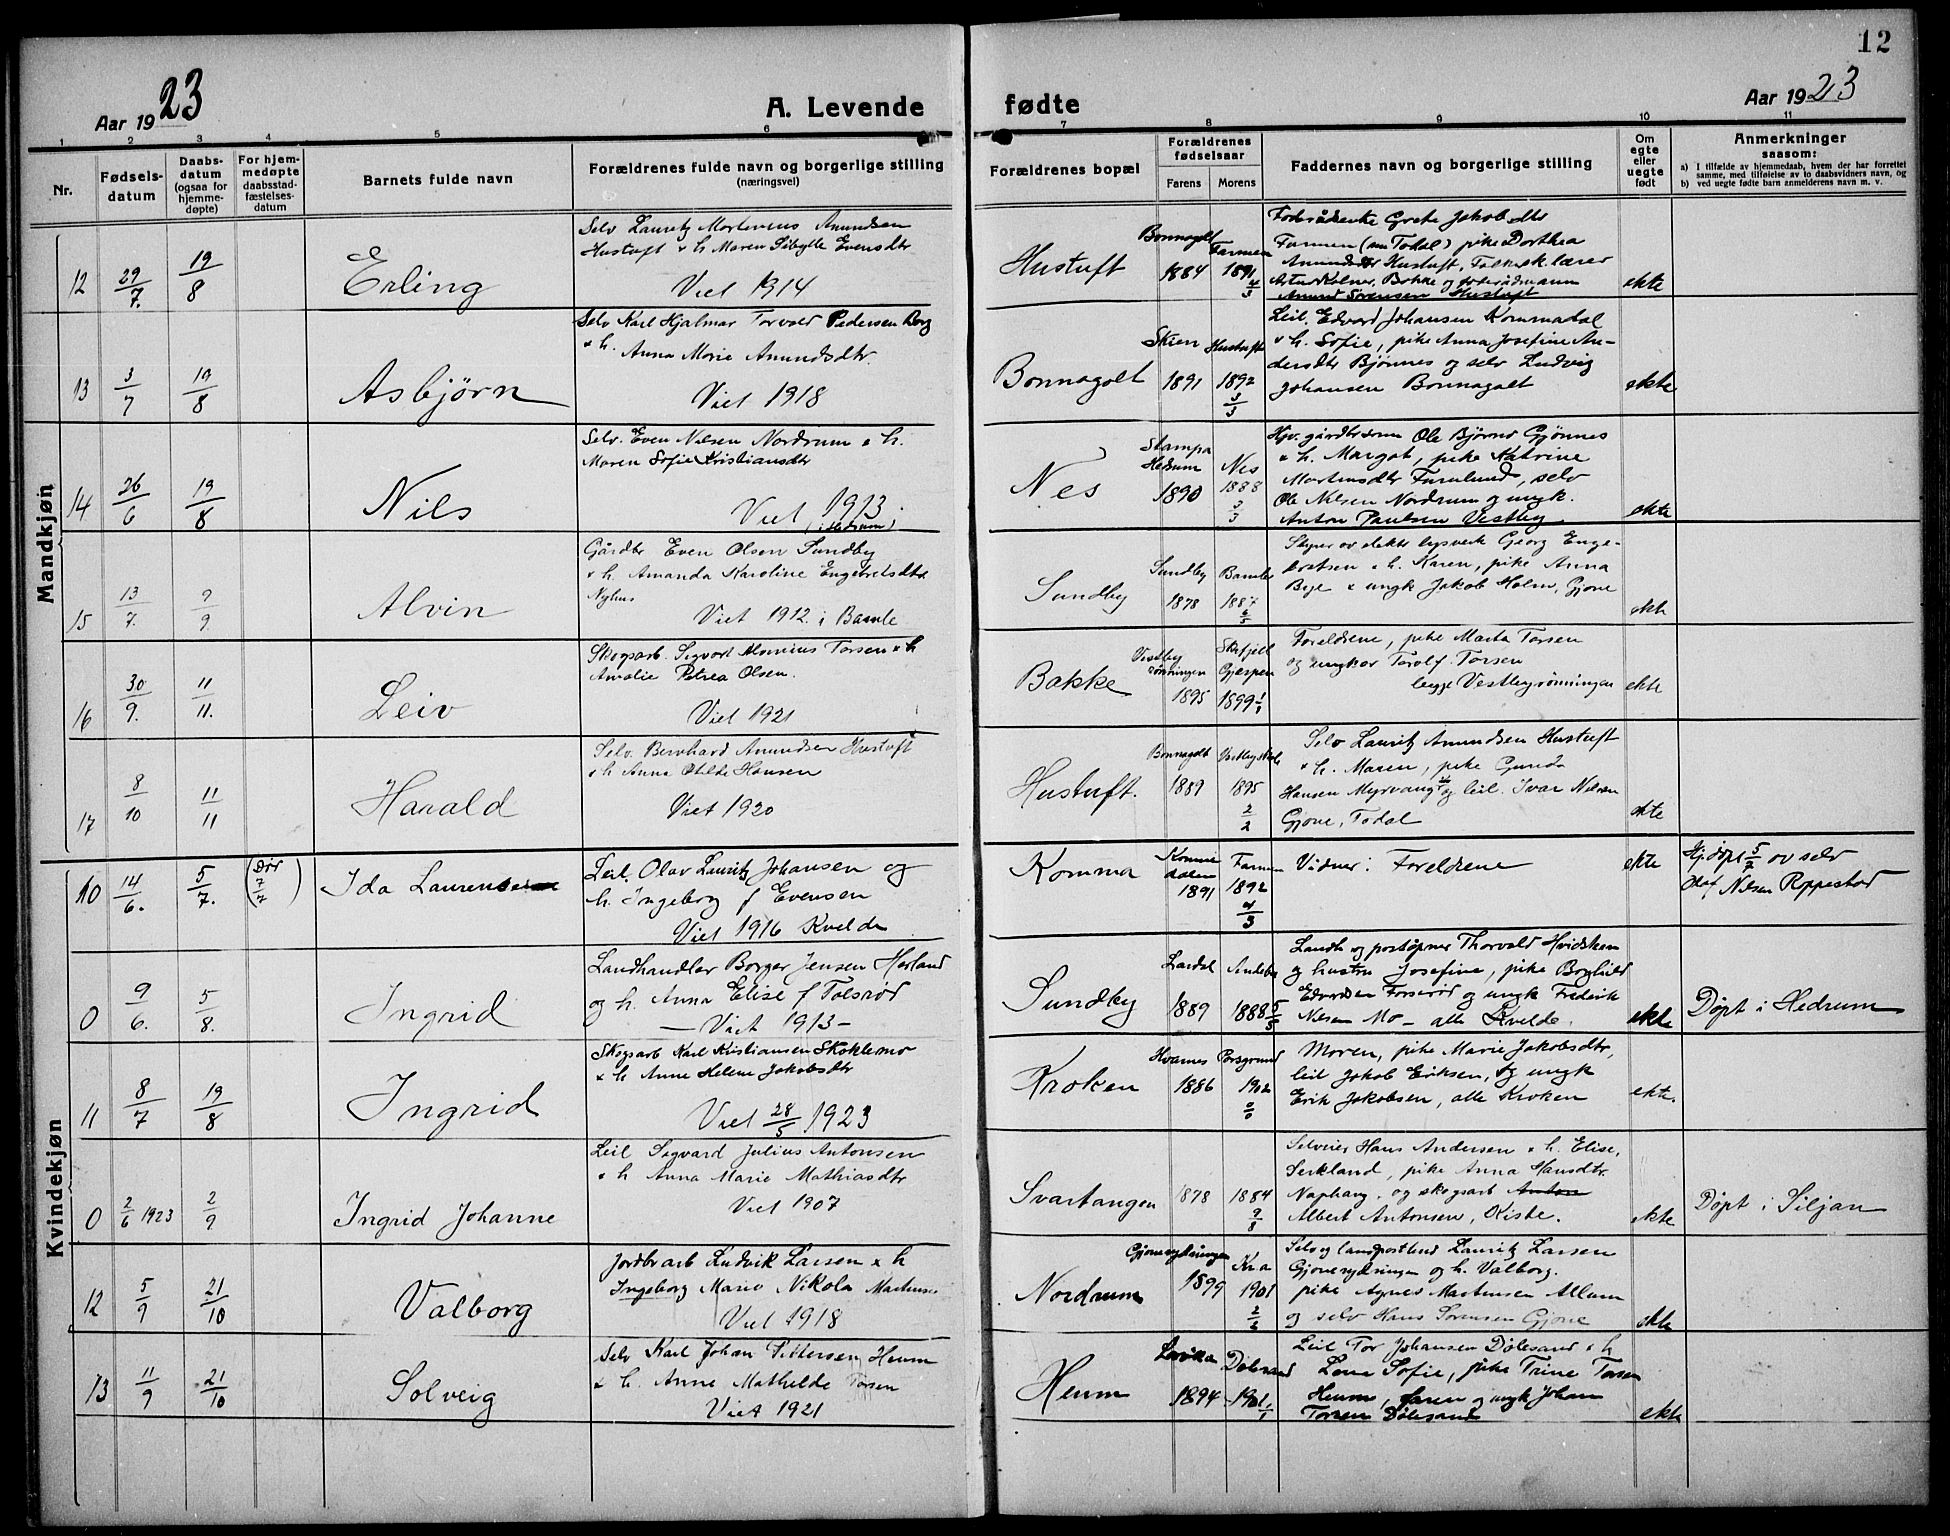 12
Aar 1923
A. Levende
fødte
Aar 1923
1 2 3 4 5 6 7 8 9 10 11
Nr.
Fødsels-
datum
Daabs-
datum
(ogsaa for
hjemme-
døpte)
For hjem-
medøpte
daabsstad-
fæstelses-
datum
Barnets fulde navn
Forældrenes fulde navn og borgerlige stilling
(næringsvei)
Forældrenes bopæl
Forældrenes
fødselsaar
Farens Morens
Faddernes navn og borgerlige stilling
Om
egte
eller
uegte
født
Anmerkninger
saasom:
a) I tilfælde av hjemmedaab, hvem der har forrettet
samme, med tilføielse av to daabsvidners navn, og
b) ved uegte fødte barn anmelderens navn m. v.
Mandkjøn
12 29/7. 19/8 Erling
Selv Lauritz Mortenius Amundsen
Hustuft & h Maren Sibylle Evensdtr
Viet 1914
Hustuft
Bonnagolt 1884
Farmen 1891 4/3
Føderådsenke Grete Jakobsdtr
Farmen (nu Todal) pike Dorthea
Amundsdtr Hustuft, Folkesk.lærer
Bakke og føderådsmann
Amund Sørensen Hustuft
ekte
13 3/7 19/8 Asbjørn
Selv Karl Hjalmar Torvald Pedersen Borg
& h. Anna Marie Amundsdtr.
Viet 1918
Bonnagolt
Skien 1891
Hustuft 1892 3/3
Leil. Edvard Johansen Kommadal
& h. Sofie, pike Anna Josefine An-
dersdtr Bjønnes og selv Ludvig
Johansen Bonnagolt
ekte
14 26/6 19/8 Nils
Selv. Even Nilsen Nordrum & h.
Maren Sofie Kristiansdtr
Viet 1913
(i Hedrum)
Nes
Stampa
Hedrum
1890
Nes
1888
3/3
Hpv. gårdbr.sønn Ole Bjørnø Gjønnes
& h. Margot, pike Katrine
Martinsdtr Furulund, selv
Ole Nilsen Nordrum og ungk.
Anton Paulsen Vestby
ekte
15 13/7. 9/9. Alvin
Gårdbr Even Olsen Sundby
& h. Amanda Karoline Engebretsdtr
Nyhus
Viet 1912. i Bamle
Sundby
Sundby 1878
Bamle 1887 6/5
Styrer av elektr. lysverk Georg Enge-
bretsen & h. Karen, pike Anna
Bye & ungk Jakob Holm, Gjone
ekte
16 30/9. 11/11. Leiv
Skogsarb. Sigvart Torsen & h
Amalie Petrea Olsen.
Viet 1921
Bakke
Vestby
rønningen
1895
Gjerpen
1899 1/1
Foreldrene, pike Marta Torsen
og ungkar Torolf Torsen
begge Vestbyrønningen
ekte
17 8/10 11/11 Harald
Selv. Bernhard Amundsen Hustuft
& h Anna Otilde Hansen
Viet 1920
Hustuft.
Bonnagolt 1889
1895 2/2
Selv Lauritz Amundsen Hustuft
& h. Maren, pike Gunda
Hansen Myrvang og leil. Ivar Nilsen
Gjone, Todal
ekte
Kvindekjøn
10 14/6. 5/7. (Dør 7/7) Ida Laurense
Leil. Olav Lauritz Johansen og
h. Ingeborg f Evensen
Viet 1916 Kvelde
Komma
Komme
dalen
1891
Farmen
1892
4/3
Vidner: Foreldrene
ekte
Hj.døpt 5/7 av selv
Olaf Nilsen Roppestad
0 9/6. 5/8. Ingrid
Landhandler Borger Jensen Hørland
og h. Anna Elise f Tolsrød
— Viet 1913 —
Sundby
Lardal 1889
Andebu 1888 5/5
Landh og poståpner Thorvald Hvidsteen
og hustru Josefine, pike Borghild
Edvardsen og ungk Fredrik
Nilsen Mo — alle Kvelde.
ekte
Døpt i Hedrum
11 8/7 19/8 Ingrid
Skogsarb Karl Kristiansen Skoklemo
& h Anne Helene Jakobsdtr
Viet 28/5 1923
Kroken
Hvarnes 1886
Porsgrund 1902 0/0
Moren, pike Marie Jakobsdtr,
leil Jakob Eriksen, og ungk
Erik Jakobsen, alle Kroken
ekte.
0 2/6 1923 2/9 Ingrid Johanne
Leil Sigvard Julius Antonsen
& h Anna Marie Mathiasdtr
Viet 1907
Svartangen
1878
1884 9/8
Selveier Hans Andersen & h. Elise,
Serkland, pike Anna Hansdtr.
Naphaug. og skogsarb Anton
Albert Antonsen, Kiste.
ekte
Døpt i Siljan
12 5/9 21/10 Valborg
Jordbr.arb Ludvik Larsen & h
Ingeborg Marie Nikola Martinsen
Viet 1918
Nordrum
Gjonerydningen 1899
Kra 1901 2/2
Selv og landpostbud Lauritz Larsen
Gjonerydningen og h. Valborg.
pike Agnes Martinsen Allum
og selv Hans Sørensen Gjone
ekte
13 11/9 21/10 Solveig
Selv Karl Johan Pettersen Heum
& h. Anne Mathilde Torsen
Viet 1921
Heum
Larvik 1894
Dolesand 1901 1/1
Leil Tor Johansen Dølesand & h
Lene Sofie, pike Trine Torsen
Heum, faren og ungk Johan
Torsen Dølesand
ekte